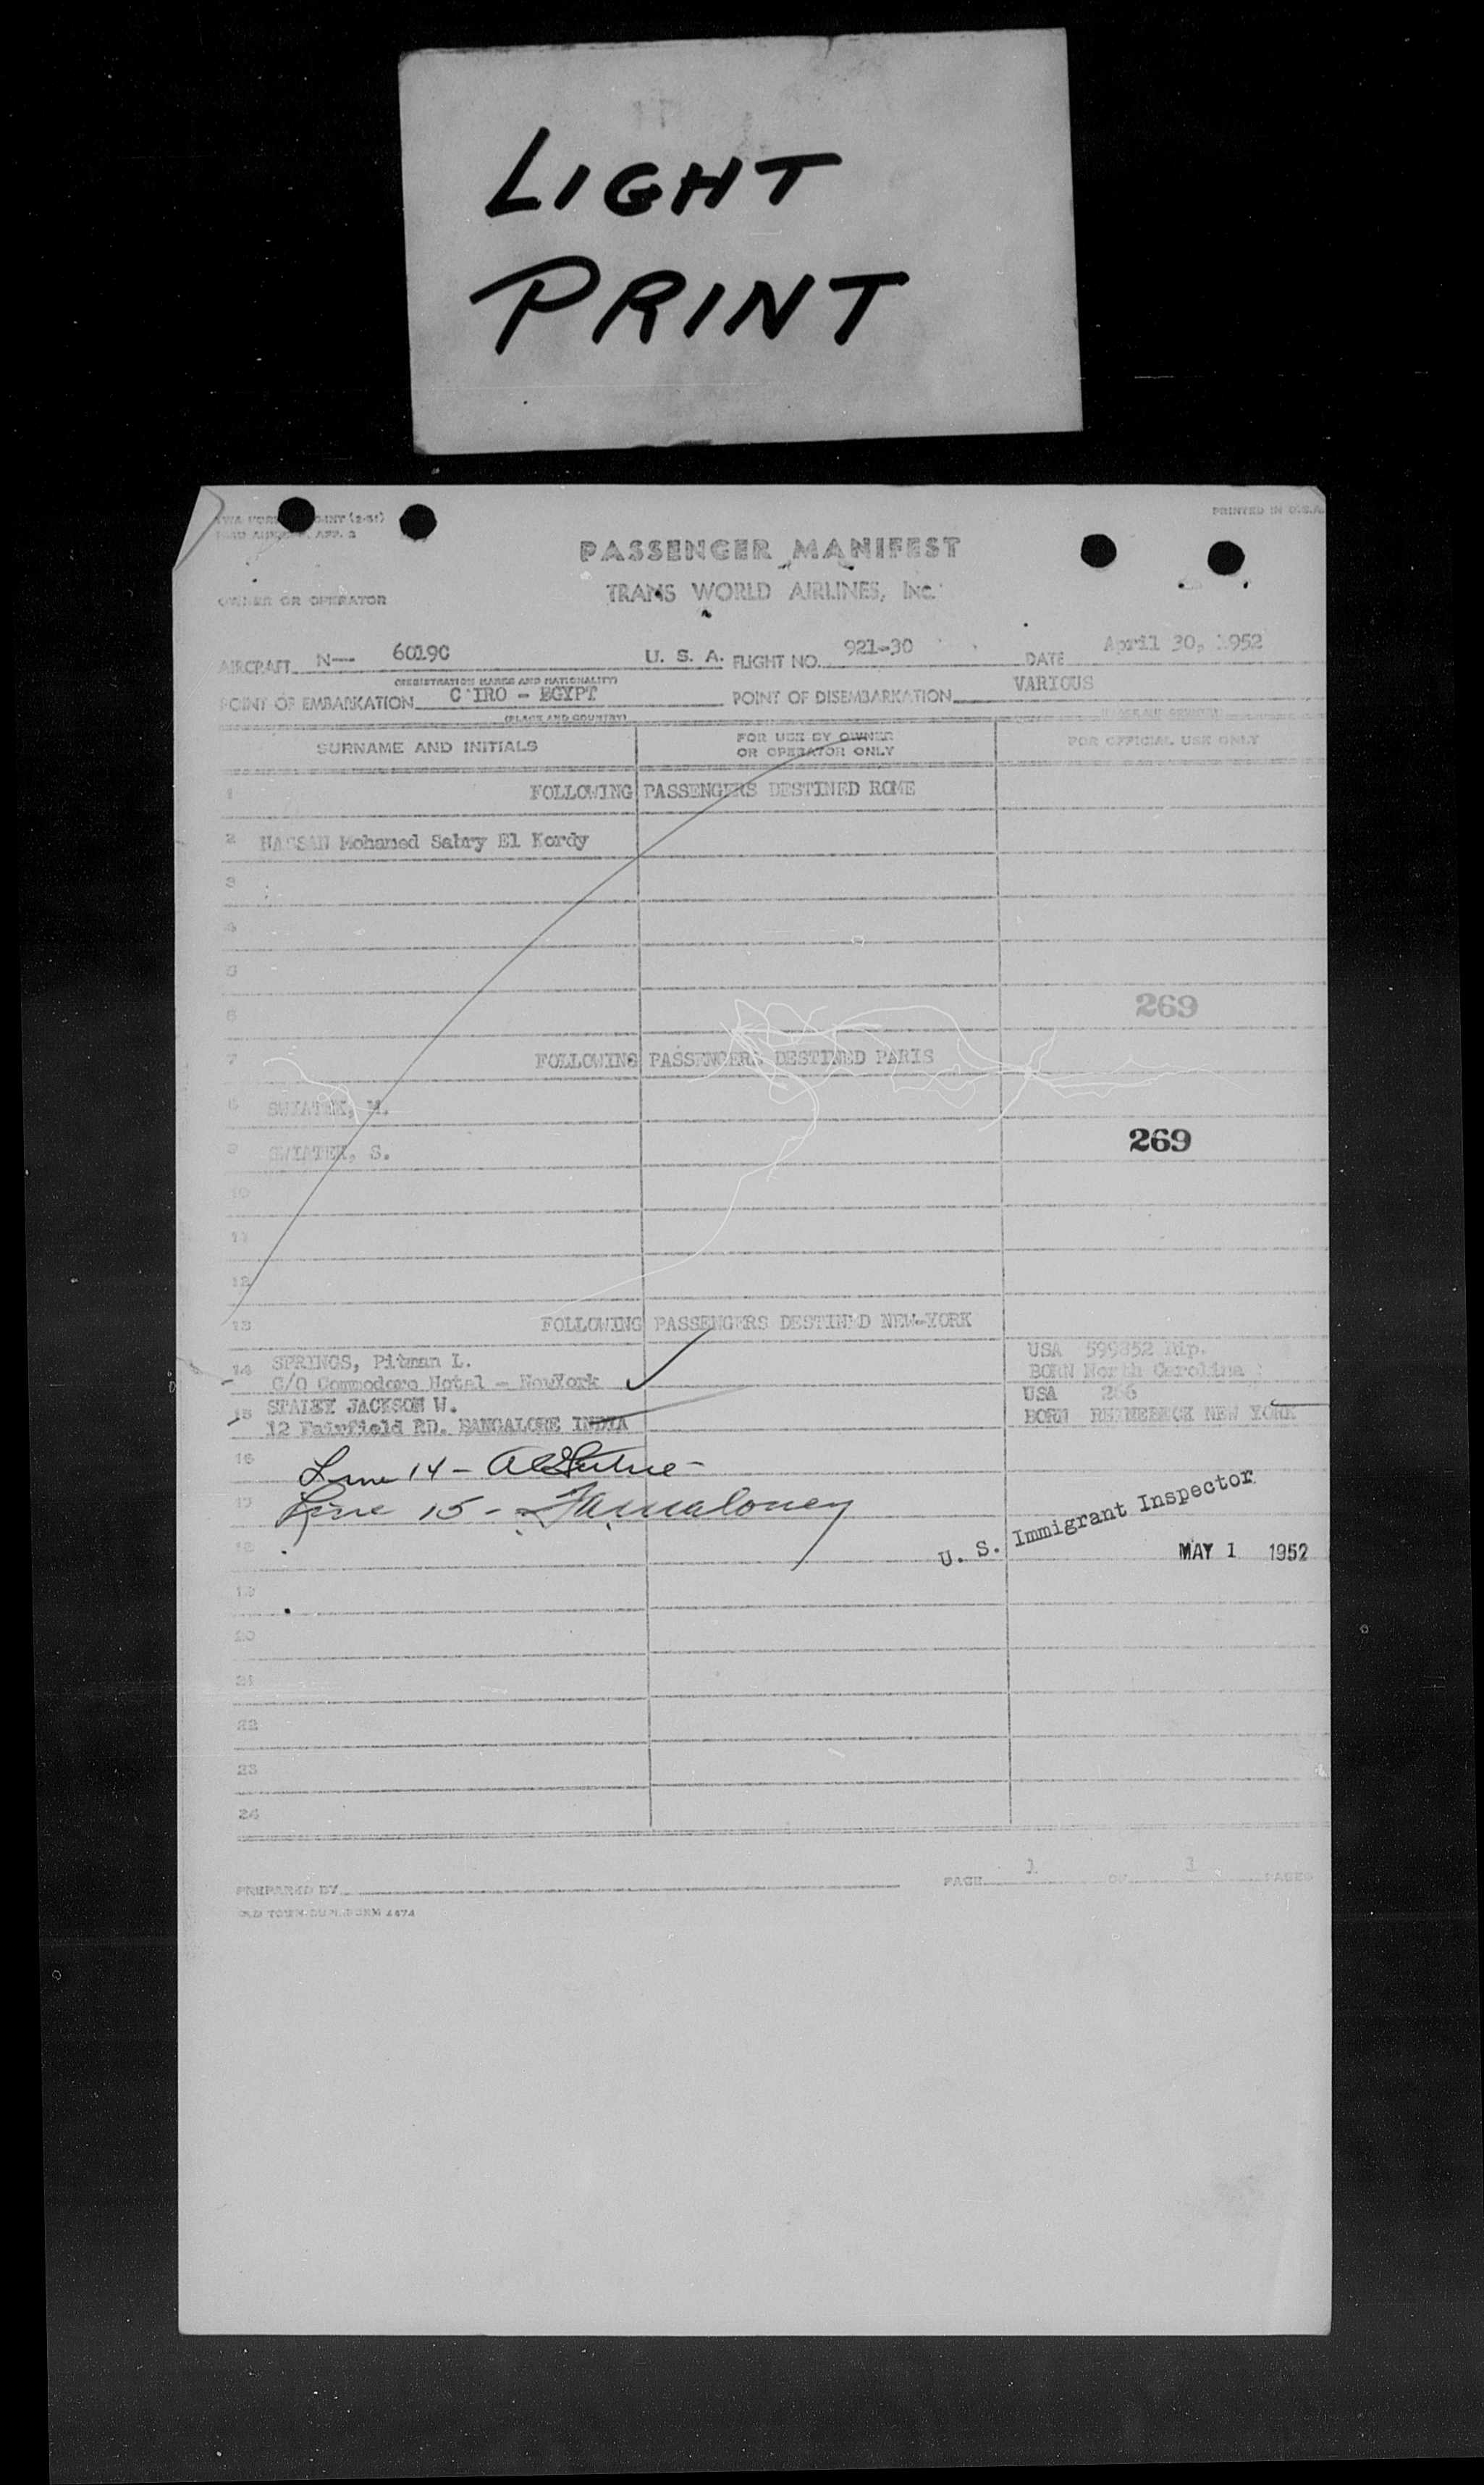 LIGHT
PRINT
PRINTED IN U.S.A.
PASSENGER MANIFEST
TRANS WORLD AIRLINES, Inc.
OWNER OR OPERATOR
AIRCRAFT N— 6019C U. S. A. FLIGHT NO. 921-30 DATE April 30, 1952
(REGISTRATION MARKS AND NATIONALITY)
POINT OF EMBARKATION C IRO - EGYPT POINT OF DISEMBARKATION VARIOUS
(PLACE AND COUNTRY)
SURNAME AND INITIALS FOR USE BY OWNER OR OPERATOR ONLY FOR OFFICIAL USE ONLY
1 FOLLOWING PASSENGERS DESTINED ROME
2 HASSAN Mohamed Sabry El Kordy
3
4
5
6 269
7 FOLLOWING PASSENGERS DESTINED PARIS
8 SWIATEK, M.
9 SWIATEK, S. 269
10
11
12
13 FOLLOWING PASSENGERS DESTINED NEW-YORK
14 SPRINGS, Pitman L. USA 599852 Dip.
C/O Commodore Hotel - NewYork BORN North Carolina
15 STALEY JACKSON W. USA 266
12 Fairfield RD. BANGALORE INDIA BORN RHINEBECK NEW YORK
16 Line 14 -
17 Line 15 - Maloney
U. S. Immigrant Inspector
18 MAY 1 1952
19
20
21
22
23
24
PREPARED BY PAGE 1 OF 1 PAGES
OLD TOWN DUP. FORM